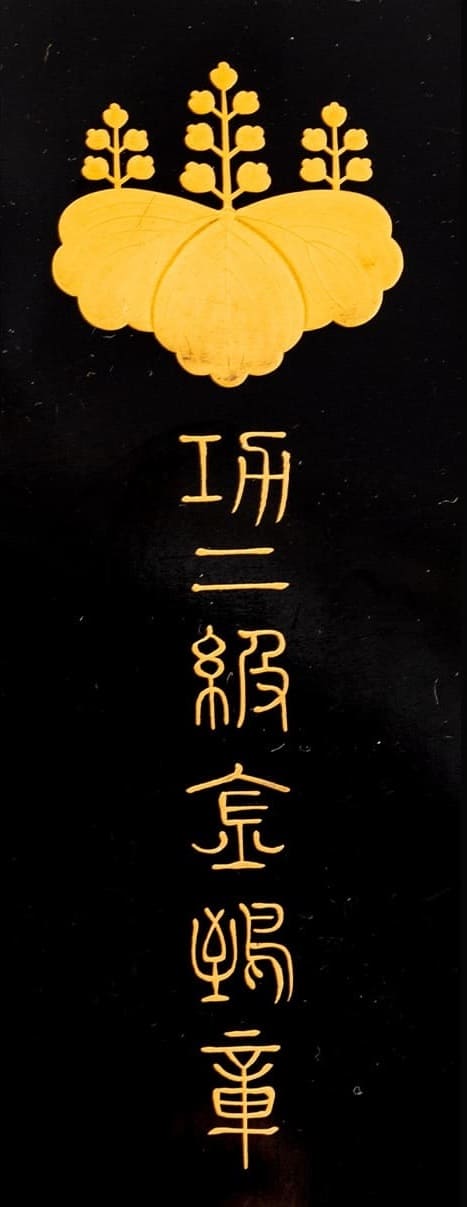 功二級金鵄章